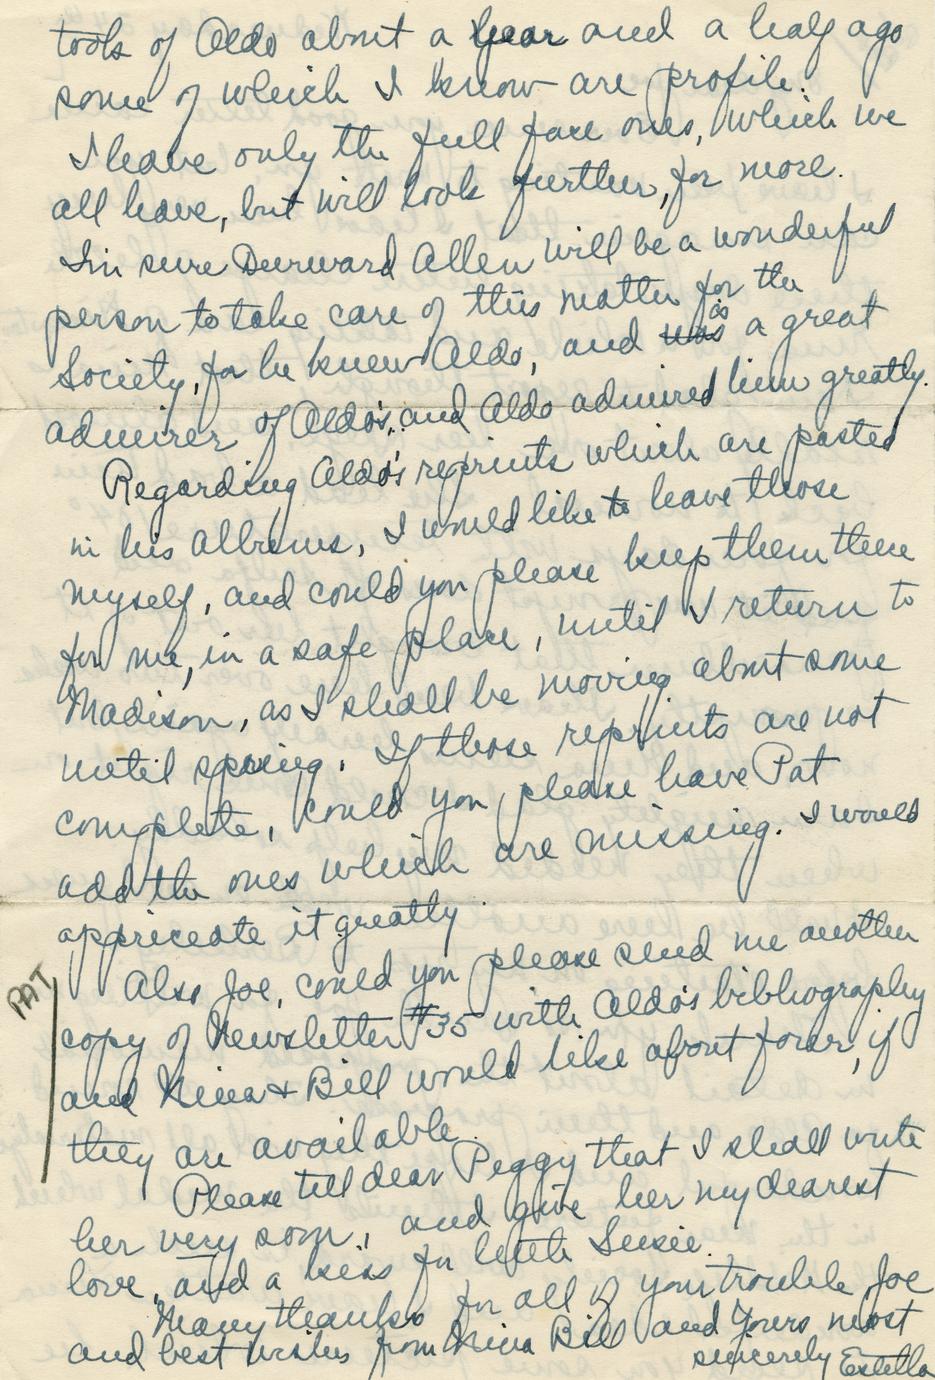 took of Aldo about a year and a half ago
some of which I know are profile.
I have only the full face ones, which we
all have, but will look further, for more.
I'm sure Durward Allen will be a wonderful
person to take care of this matter for the
Society, for he knew Aldo, and was as a great
admirer of Aldo's, and Aldo admired him greatly.
Regarding Aldo's reprints which are pasted
in his albums, I would like to have those
myself, and could you please keep them there
for me, in a safe place, until I return to
Madison, as I shall be moving about some
until spring. If those reprints are not
complete, could you please have Pat
add the ones which are missing. I would
appreceate it greatly.
Also Joe, could you please send me another
copy of Newsletter #35 with Aldo's bibliography
and Nina & Bill would like about four, if
they are available.
PAT
Please tell dear Peggy that I shall write
her very soon, and give her my dearest
love, and a kiss for little Susie.
Many thanks for all of your trouble, Joe
and best wishes from Nina Bill and Yours most
sincerely Estella